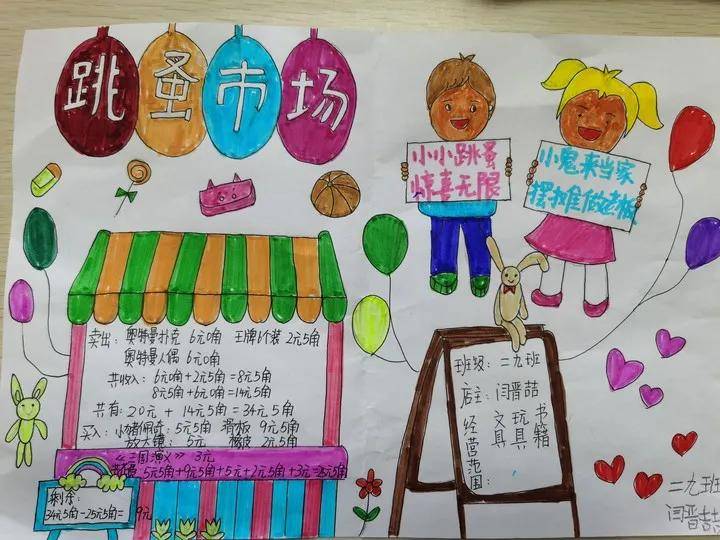 跳蚤市场
小小跳蚤
惊喜无限
小鬼来当家
摆摊做老板
卖出：奥特曼扑克 6元0角 王牌1个装 2元5角
奥特曼人偶 6元0角
共收入：6元0角+2元5角=8元5角
8元5角+6元0角=14元5角
共有：20元+14元5角=34元5角
买入：小猪佩奇：5元5角 滑板 9元5角
放大镜：5元 橡皮 2元5角
《三国演义》 3元
5元5角+9元5角+5元+2元5角+3元=25元5角
剩余：
34元5角-25元5角=9元
班级：二九班
店主：闫晋喆
经营范围：
文具
玩具
书籍
二九班
闫晋喆